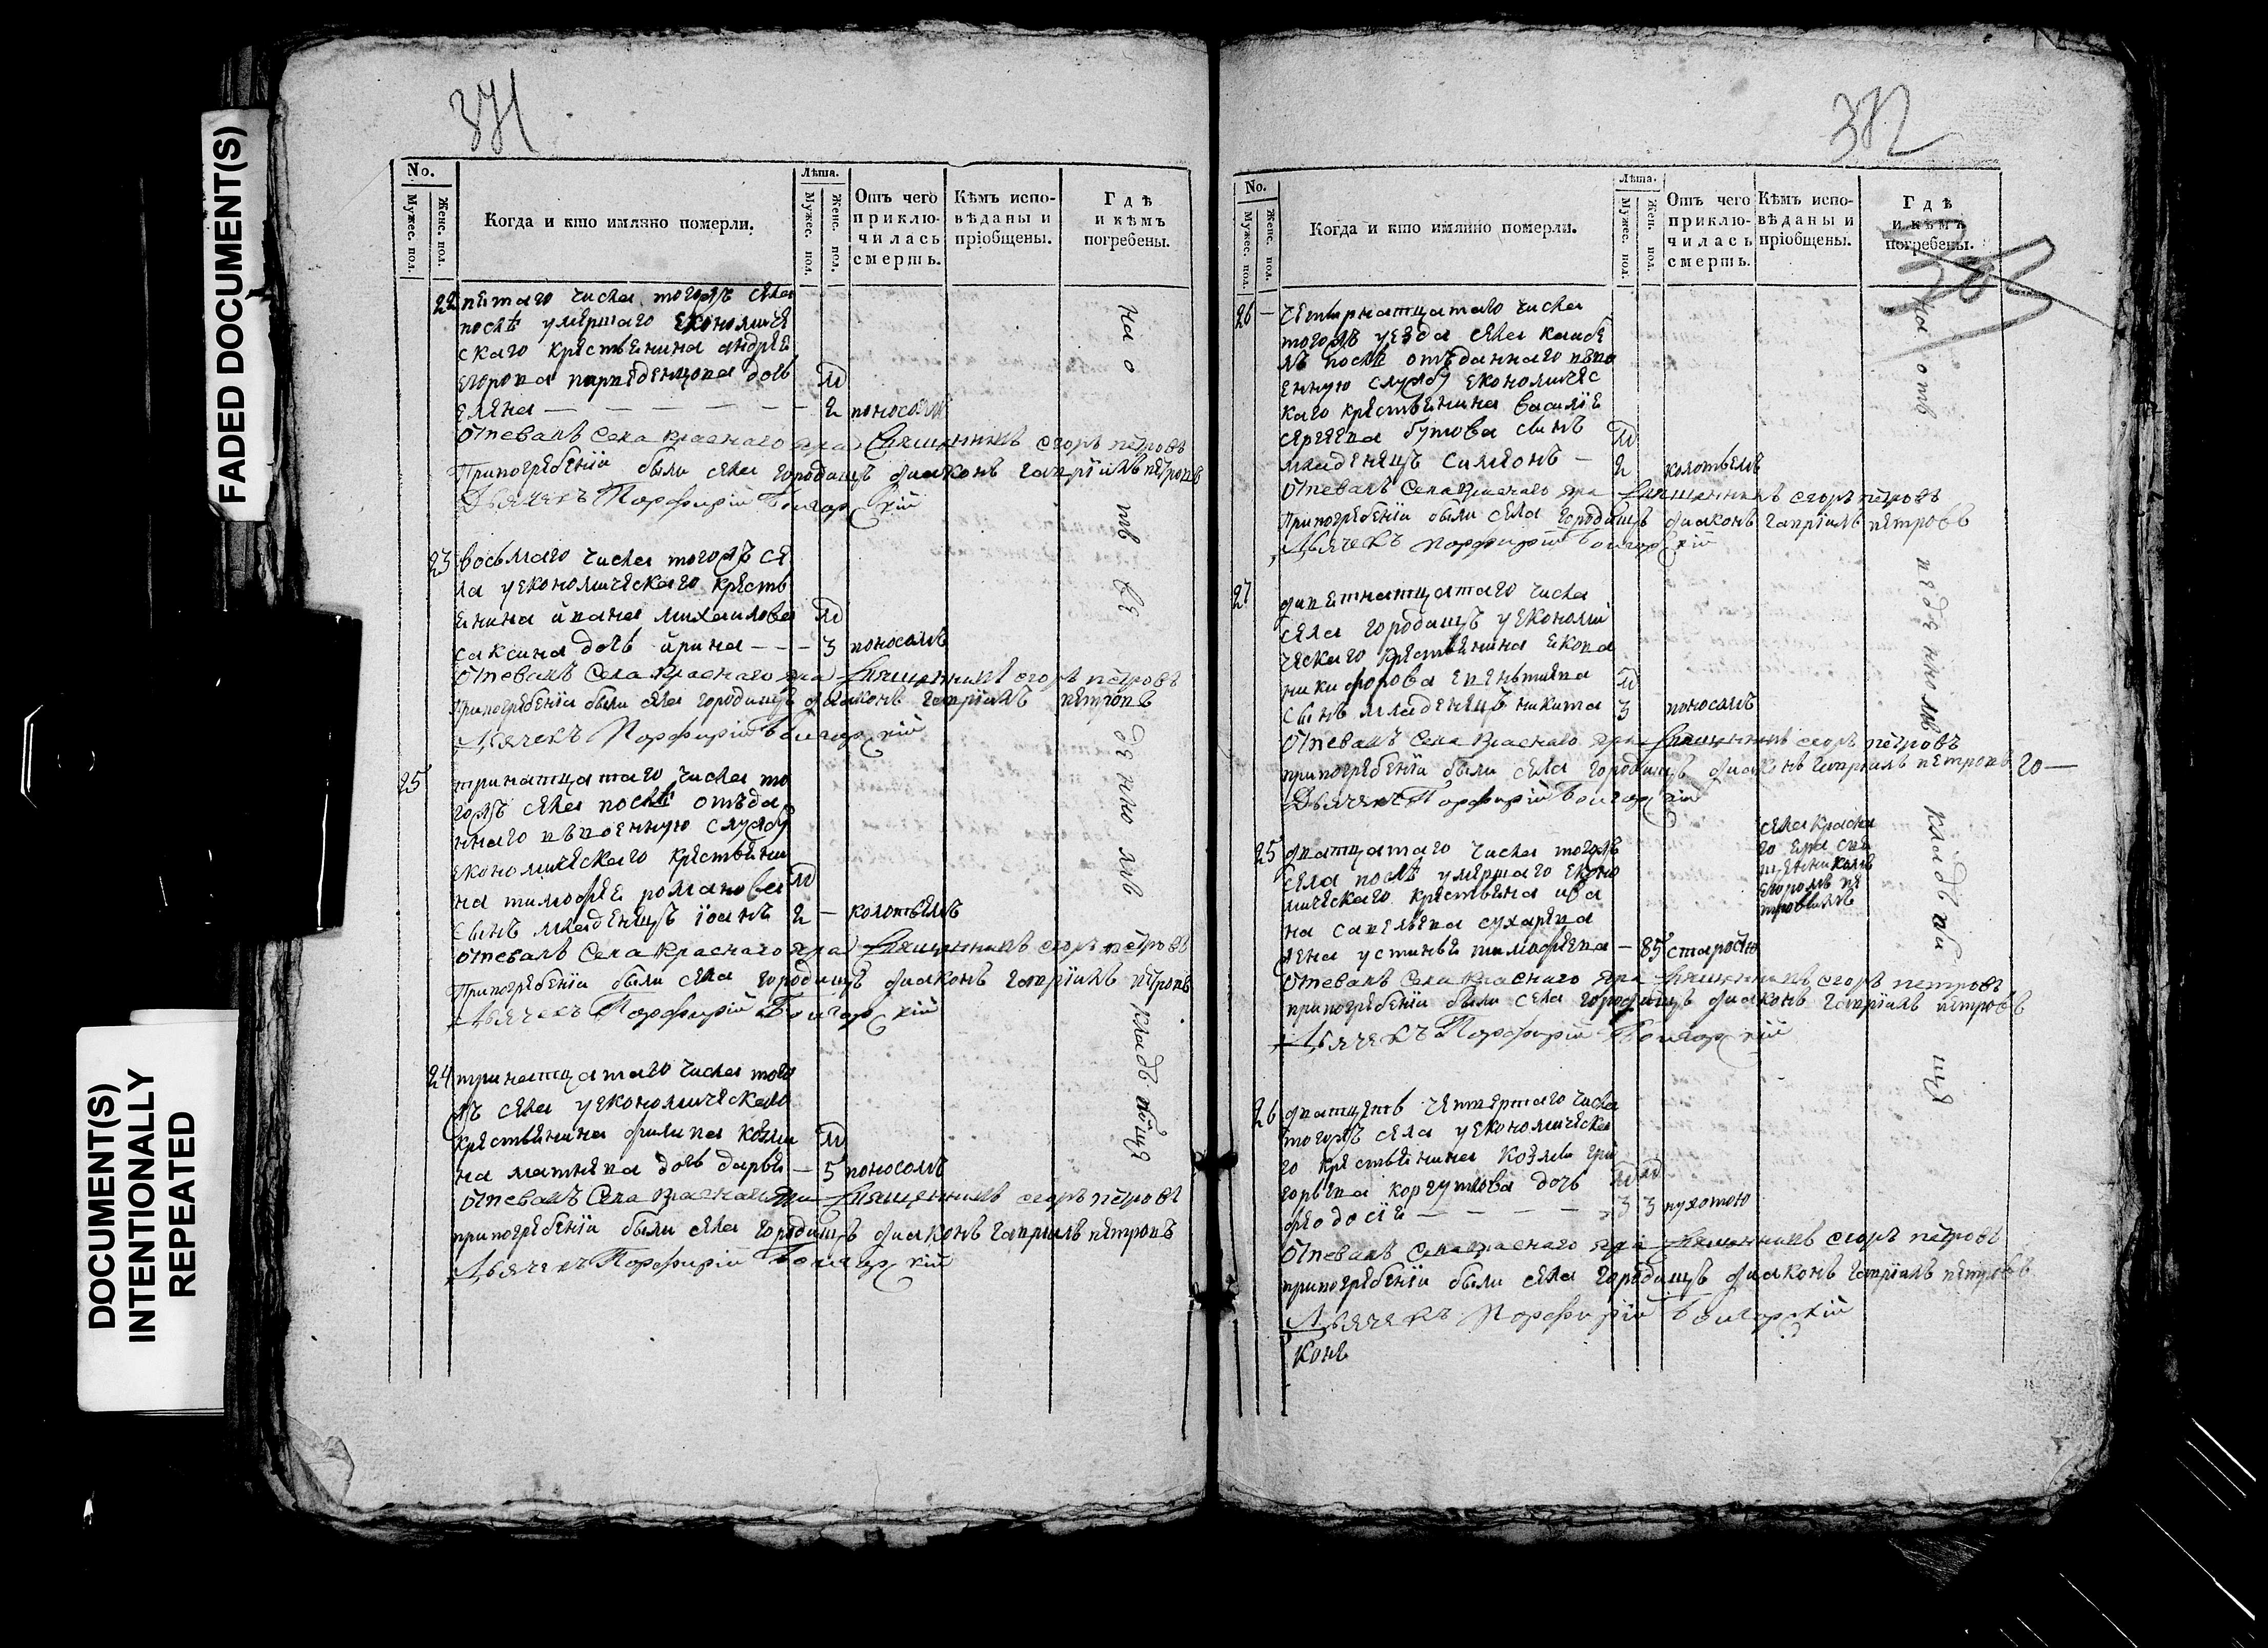 FADED DOCUMENT(S)
DOCUMENT(S)
INTENTIONALLY
REPEATED
371
No.
Мужес. пол.
Женс. пол.
Когда и кто имянно померли.
Лѣта.
Мужес. пол.
Женс. пол.
Отъ чего
приклю-
чилась
смерть.
Кѣмъ испо-
вѣданы и
пріобщены.
Гдѣ
и кѣмъ
погребены.
22 пятаго числа тогожъ села
послѣ умершаго економиче
скаго крестьянина андрея
егорова дочь м
елена — — — — — 2 поносомъ
Отпевалъ Села Краснаго яра Священникъ егоръ петровъ
Припогребении были села городищъ диаконъ гавриилъ петровъ
Дьячекъ Порфирій
23 восьмаго числа тогожъ се
ла у економическаго кресть
янина ивана михаилова м
саксина дочь ирина - - - 3 поносомъ
Отпевалъ Села Краснаго яра Священникъ егоръ петровъ
припогребении были села городищъ диаконъ гавриилъ петровъ
Дьячекъ Порфирій
25 тринатцатаго числа то
гожъ села послѣ отъда
ннаго въвоенную службу
економическаго крестьяни
на тимофея романова м
сынъ младенецъ іоанъ 2 — колотьемъ
Отпевалъ Села Краснаго яра Священникъ егоръ петровъ
Припогребении были села городищъ диаконъ гавриилъ петровъ
Дьячекъ Порфирій
24 тринатцатаго числа того
жъ села у економическаго
крестьянина филипа козми м
на матнева дочь дарья — 5 поносомъ
Отпевалъ Села Краснаго яра Священникъ егоръ петровъ
припогребении были села городищъ диаконъ гавриилъ петровъ
Дьячекъ Порфирій
на отведенномъ кладбище
372
No.
Мужес. пол.
Женс. пол.
Когда и кто имянно померли.
Лѣта.
Мужес. пол.
Жен. пол.
Отъ чего
приклю-
чилась
смерть.
Кѣмъ испо-
вѣданы и
пріобщены.
Гдѣ
и кѣмъ
погребены.
26 — четырнатцатаго числа
тогожъ уезда села
послѣ отъданнаго въво
енную службу економичес
каго крестьянина василіе
сергеева бутова сынъ м
младенецъ симеонъ — 2 колотьемъ
Отпевалъ Села Краснаго яра Священникъ егоръ петровъ
Припогребении были села городищъ диаконъ гавриилъ петровъ
Дьячекъ порфирій
27 девятнатцатаго числа
села городищъ у економи
ческаго крестьянина
никифорова м
сынъ младенецъ никита 3 поносомъ
Отпевалъ Села Краснаго яра Священникъ егоръ петровъ
припогребении были села городищъ диаконъ гавриилъ петровъ 20 —
Дьячекъ Порфирій
25 дватцатаго числа тогожъ
села послѣ умершаго еконо
мическаго крестьяна ива
на савельева сухарева
жена устинья тимофеева — 85 старостью
села красна
го яра свя
щенникомъ
егоромъ пе
тровымъ
Отпевалъ Села Краснаго яра Священникъ егоръ петровъ
припогребении были села городищъ диаконъ гавриилъ петровъ
Дьячекъ Порфирій
26 дватцеть четвертаго числа
тогожъ села у економическа
го крестьянина козмы гри
горьева дочь м м
феодосія — — — — 3 3 сухотою
Отпевалъ Села Краснаго яра Священникъ егоръ петровъ
припогребении были села городищъ диаконъ гавриилъ петровъ
Дьячекъ Порфирій
конъ
на отведенномъ кладбище